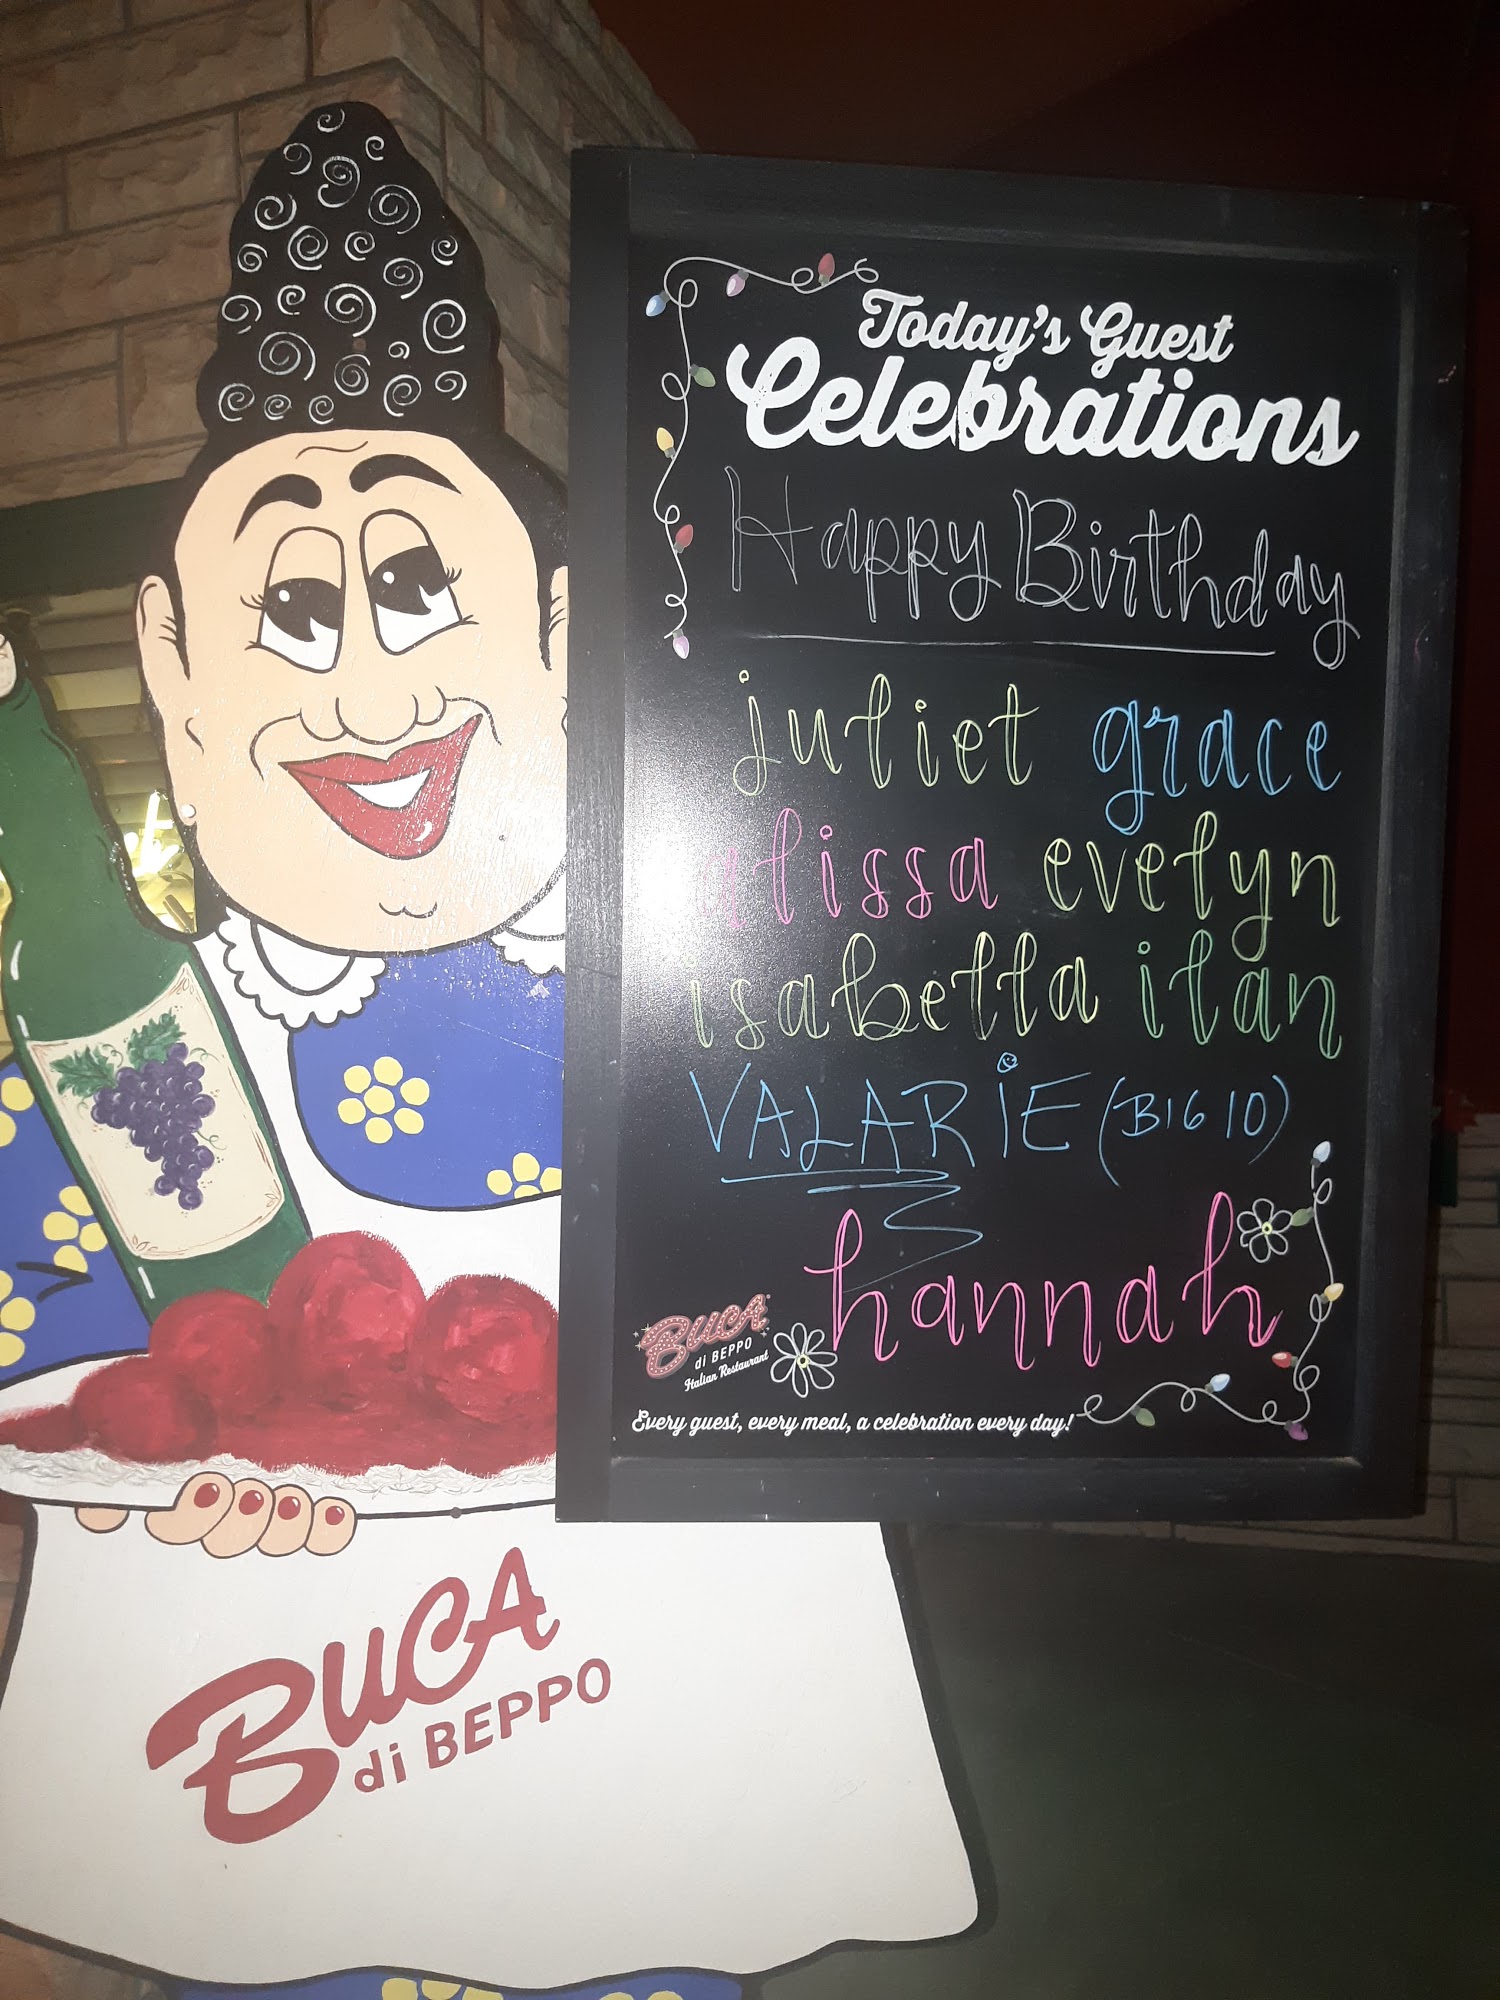 Today's Guest
Celebrations
Happy Birthday
juliet grace
alissa evelyn
isabella ilan
VALARiE (BIG 10)
hannah
BUCA
di BEPPO
Italian Restaurant
Every guest, every meal, a celebration every day!
BUCA
di BEPPO